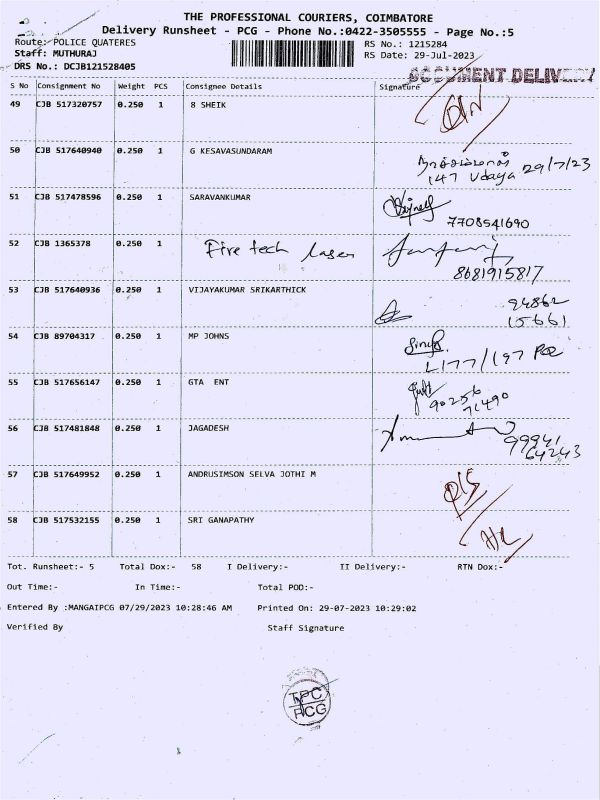 THE PROFESSIONAL COURIERS, COIMBATORE
Delivery Runsheet - PCG - Phone No.:0422-3505555 - Page No.:5
Route: POLICE QUATERES
RS No.: 1215284
Staff: MUTHURAJ
RS Date: 29-Jul-2023
DRS No.: DCJB121528405
DOCUMENT DELIVERY
S No Consignment No Weight PCS Consignee Details Signature
49 CJB 517320757 0.250 1 8 SHEIK
50 CJB 517640940 0.250 1 G KESAVASUNDARAM
29/7/23
147 Udaya
51 CJB 517478596 0.250 1 SARAVANKUMAR
7708541690
52 CJB 1365378 0.250 1 Fire tech laser
8681915817
53 CJB 517640936 0.250 1 VIJAYAKUMAR SRIKARTHICK
94862
15661
54 CJB 89704317 0.250 1 MP JOHNS
L177/197
55 CJB 517656147 0.250 1 GTA ENT
90256
71490
56 CJB 517481848 0.250 1 JAGADESH
99941
64243
57 CJB 517649952 0.250 1 ANDRUSIMSON SELVA JOTHI M
58 CJB 517532155 0.250 1 SRI GANAPATHY
Tot. Runsheet:- 5 Total Dox:- 58 I Delivery:- II Delivery:- RTN Dox:-
Out Time:- In Time:- Total POD:-
Entered By :MANGAIPCG 07/29/2023 10:28:46 AM Printed On: 29-07-2023 10:29:02
Verified By Staff Signature
TPC
PCG